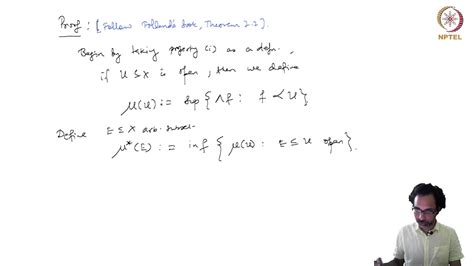 Proof: [Follow Folland's book, Theorem 2.2].
NPTEL
Begin by taking property (i) as a defn.
if U ⊆ X is open, then we define
μ(U) := sup { Λf : f ≺ U }
Define E ⊆ X arb. subset
μ*(E) := inf { μ(U) : E ⊆ U open }.